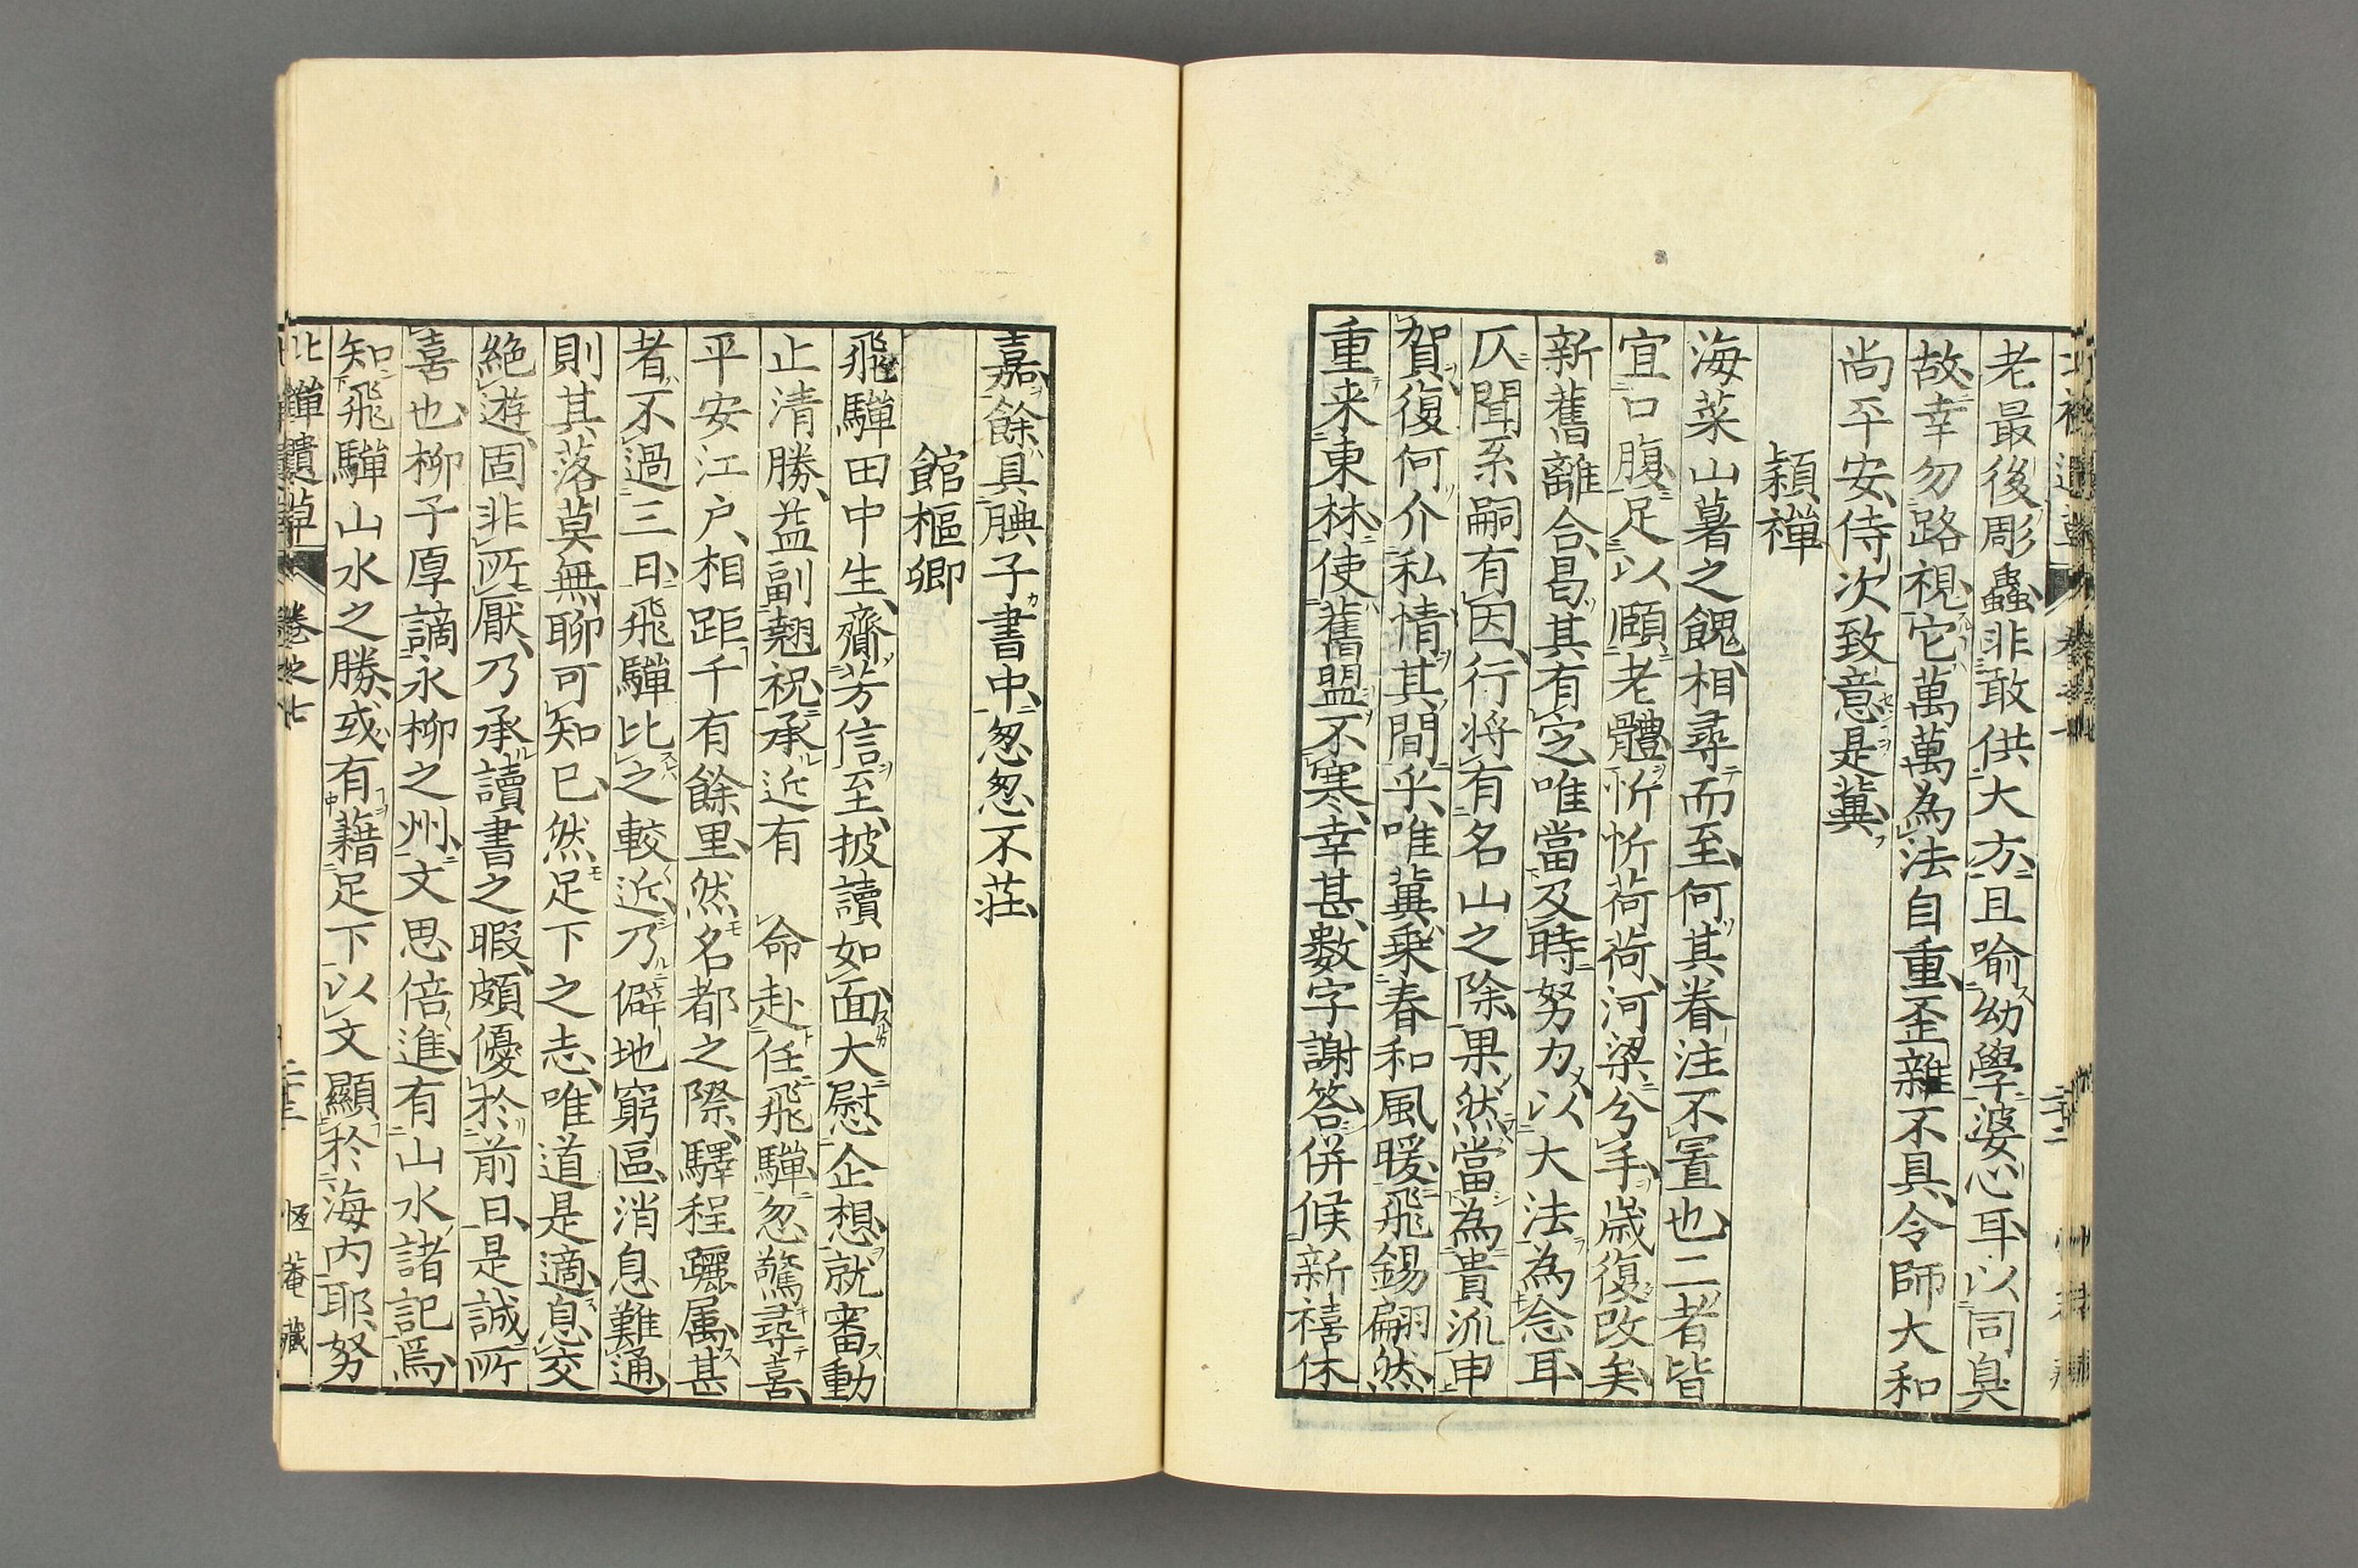 老最後彫蟲非敢供大方且喻幼學婆心耳以同臭
故幸勿路視它萬萬為法自重歪雜不具令師大和
尚平安侍次致意是冀
穎禪
海菜山暑之餽相尋而至何其眷注不置也二者皆
宜口腹足以頤老體忻忻荷荷河梁分手歲復改矣
新舊離合曷其有定唯當及時努力以大法為念耳
仄聞系嗣有因行将有名山之除果然當為貴流申
賀復何介私情其間乎唯冀乗春和風暖飛錫翩然
重来東林使舊盟不寒幸甚數字謝答併候新禧休
嘉餘具腆子書中怱怱不莊
館樞卿
飛驒田中生齎芳信至披讀如面大慰企想就審動
止清勝益副翹祝承近有　命赴任飛驒忽驚尋喜
平安江户相距千有餘里然名都之際驛程邐属甚
者不過三日飛驒比之較近乃僻地窮區消息難通
則其落莫無聊可知已然足下之志唯道是適息交
絶遊固非所厭乃承讀書之暇頗優於前日是誠所
喜也柳子厚謫永柳之州文思倍進有山水諸記焉
知飛驒山水之勝或有藉足下以文顯於海内耶努
北禪遺草 卷之七 二十三 恆菴藏